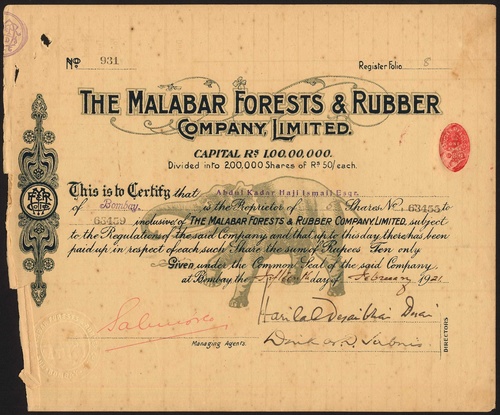 No 931
Register Folio 8
THE MALABAR FORESTS & RUBBER
COMPANY, LIMITED.
CAPITAL RS 1,00,00,000.
Divided into 200,000 Shares of RS 50/each.
This is to Certify that Abdul Kadar Haji Ismail Esqr.
of Bombay. is the Proprietor of Shares No 63455 to
63459 inclusive of THE MALABAR FORESTS & RUBBER COMPANY, LIMITED, subject
to the Regulations of the said Company and that up to this day there has been
paid up in respect of each such Share the sum of Rupees Ten only
Given under the Common Seal of the said Company,
at Bombay the day of February 1921.
Harilal Desaibhai Desai
Managing Agents.
DIRECTORS